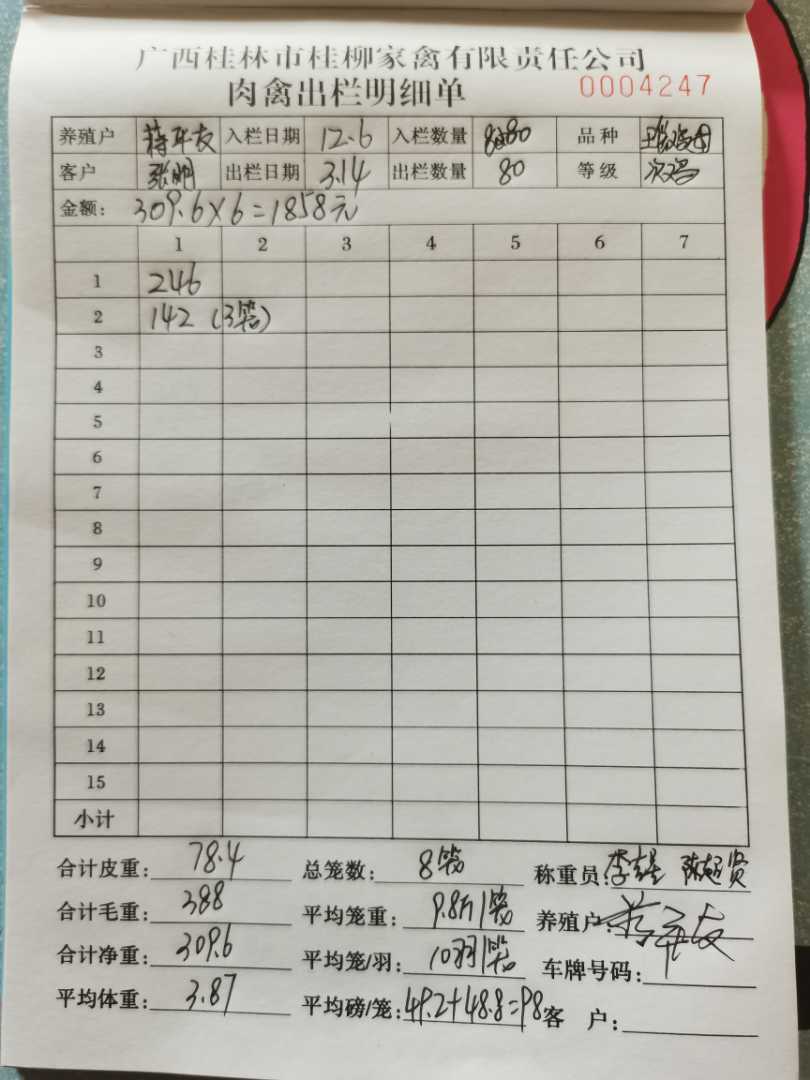 广西桂林市桂柳家禽有限责任公司
肉禽出栏明细单 0004247
养殖户 蒋年友 入栏日期 12.6 入栏数量 8080 品种
客户 张明 出栏日期 3.14 出栏数量 80 等级 次鸡
金额: 309.6×6=1858元
1 2 3 4 5 6 7
1 246
2 142 (3笼)
3
4
5
6
7
8
9
10
11
12
13
14
15
小计
合计皮重: 78.4 总笼数: 8笼 称重员: 陈超贤
合计毛重: 388 平均笼重: 9.8斤/笼 养殖户:
合计净重: 309.6 平均笼/羽: 10羽/笼 车牌号码:
平均体重: 3.87 平均磅/笼: 49.2+48.8=98 客 户: